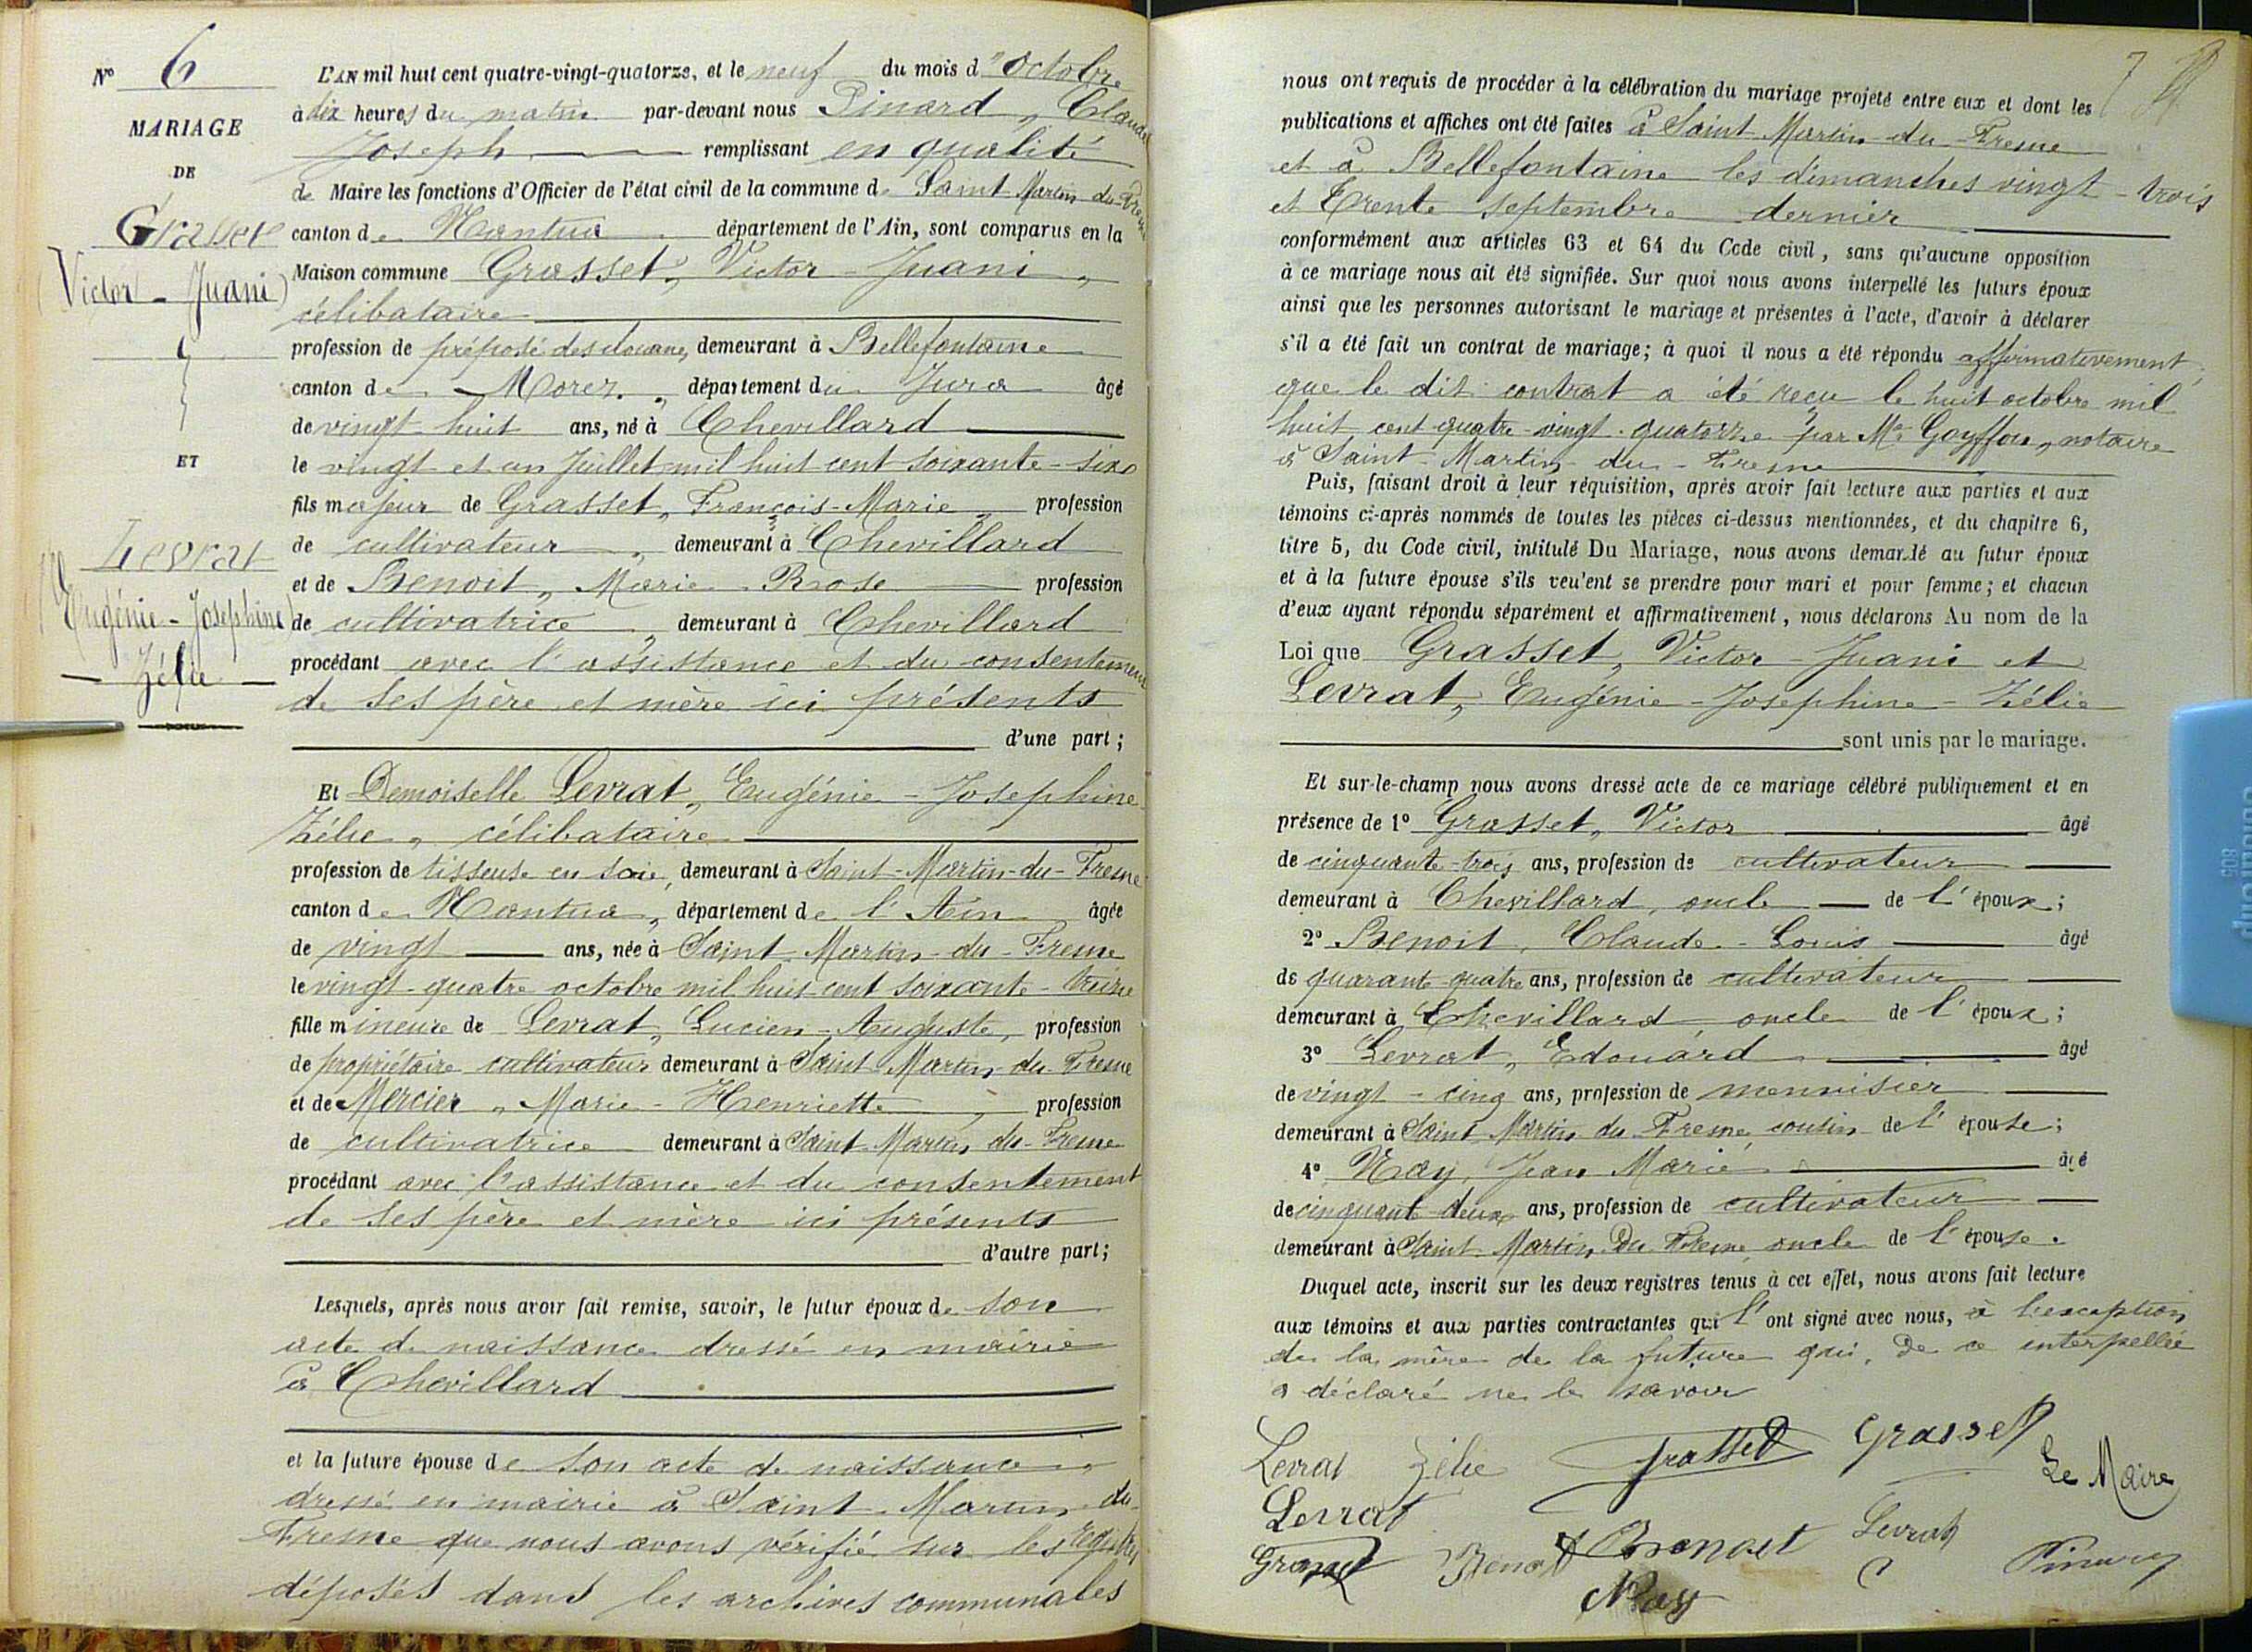 N° 6
MARIAGE
DE
Grasset
(Victor - Juani)
ET
Levrat
(Eugénie - Josephine
- Zélie -
L'AN mil huit cent quatre-vingt-quatorze, et le neuf du mois d' octobre
à dix heures du matin par-devant nous Pinard, Claude
Joseph remplissant en qualité
de Maire les fonctions d'Officier de l'état civil de la commune de Saint-Martin-du-Fresne
canton de Nantua département de l'Ain, sont comparus en la
Maison commune Grasset, Victor-Juani,
célibataire
profession de préposé des douanes, demeurant à Bellefontaine
canton de Morez, département du Jura âgé
de vingt-huit ans, né à Chevillard
le vingt et un Juillet mil huit cent soixante-six
fils majeur de Grasset, François-Marie, profession
de cultivateur, demeurant à Chevillard
et de Benoit, Marie-Rose profession
de cultivatrice, demeurant à Chevillard
procédant avec l'assistance et du consentement
de ses père et mère ici présents
d'une part;
Et Demoiselle Levrat, Eugénie-Josephine
Zélie, célibataire
profession de tisseuse en soie, demeurant à Saint-Martin-du-Fresne
canton de Nantua, département de l'Ain âgée
de vingt ans, née à Saint-Martin-du-Fresne
le vingt-quatre octobre mil huit cent soixante-treize
fille mineure de Levrat, Lucien-Auguste, profession
de propriétaire cultivateur demeurant à Saint-Martin-du-Fresne
et de Mercier, Marie-Henriette, profession
de cultivatrice demeurant à Saint-Martin-du-Fresne
procédant avec l'assistance et du consentement
de ses père et mère ici présents
d'autre part;
Lesquels, après nous avoir fait remise, savoir, le futur époux de son
acte de naissance dressé en mairie
à Chevillard
et la future épouse de son acte de naissance,
dressé en mairie à Saint-Martin-du-
Fresne que nous avons vérifié sur les registres
déposés dans les archives communales
7
nous ont requis de procéder à la célébration du mariage projeté entre eux et dont les
publications et affiches ont été faites à Saint-Martin-du-Fresne
et à Bellefontaine les dimanches vingt-trois
et trente septembre dernier
conformément aux articles 63 et 64 du Code civil, sans qu'aucune opposition
à ce mariage nous ait été signifiée. Sur quoi nous avons interpellé les futurs époux
ainsi que les personnes autorisant le mariage et présentes à l'acte, d'avoir à déclarer
s'il a été fait un contrat de mariage; à quoi il nous a été répondu affirmativement,
que le dit contrat a été reçu le huit octobre mil
huit cent quatre-vingt-quatorze par Me Goyffon, notaire
à Saint-Martin-du-Fresne
Puis, faisant droit à leur réquisition, après avoir fait lecture aux parties et aux
témoins ci-après nommés de toutes les pièces ci-dessus mentionnées, et du chapitre 6,
titre 5, du Code civil, intitulé Du Mariage, nous avons demandé au futur époux
et à la future épouse s'ils veulent se prendre pour mari et pour femme; et chacun
d'eux ayant répondu séparément et affirmativement, nous déclarons Au nom de la
Loi que Grasset, Victor-Juani et
Levrat, Eugénie-Josephine-Zélie
sont unis par le mariage.
Et sur-le-champ nous avons dressé acte de ce mariage célébré publiquement et en
présence de 1° Grasset, Victor âgé
de cinquante-trois ans, profession de cultivateur
demeurant à Chevillard, oncle de l'époux;
2° Benoit, Claude-Louis âgé
de quarante-quatre ans, profession de cultivateur
demeurant à Chevillard, oncle de l'époux;
3° Levrat, Edouard âgé
de vingt-cinq ans, profession de mennisier
demeurant à Saint Martin du Fresne cousin de l'épouse;
4° Nay, Jean Marie âgé
de cinquante-deux ans, profession de cultivateur
demeurant à Saint Martin Du Fresne oncle de l'épouse.
Duquel acte, inscrit sur les deux registres tenus à cet effet, nous avons fait lecture
aux témoins et aux parties contractantes qui l'ont signé avec nous, à l'exception
de la mère de la future qui, de ce interpellée
a déclaré ne le savoir
Levrat Zélie Grasset Grasset Le Maire
Levrat
Grasset Benoit Benoit Levrat Pinard
Nay